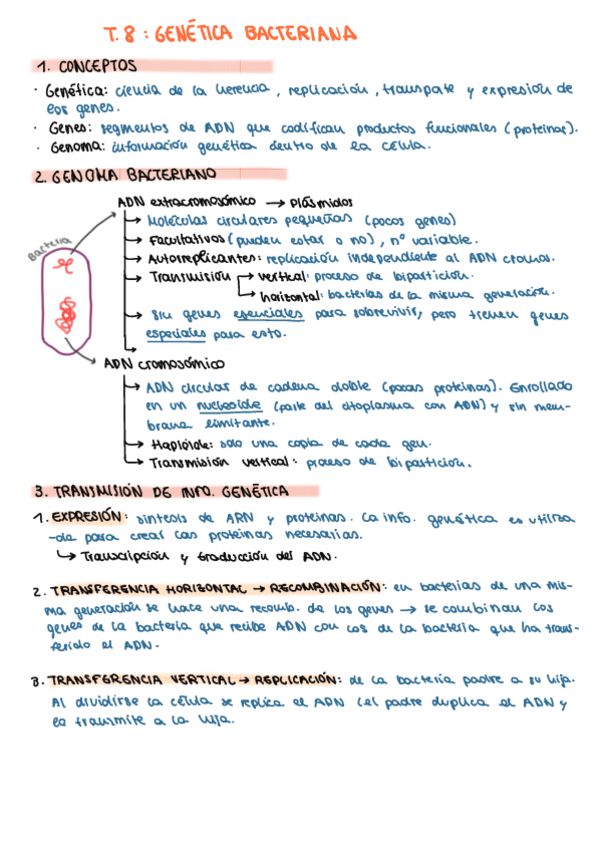 T. 8 : GENÉTICA BACTERIANA
1. CONCEPTOS
· Genética: ciencia de la herencia, replicación, transpate y expresión de
los genes.
· Genes: segmentos de ADN que codifican productos funcionales (proteínas).
· Genoma: información genética dentro de la célula.
2. GENOMA BACTERIANO
ADN extracromosómico → Plásmidos
Bacteria
→ Moléculas circulares pequeñas (pocos genes)
→ Facultativos (pueden estar o no), nº variable.
→ Autorreplicantes: replicación independiente al ADN cromos.
→ Transmisión → vertical: proceso de bipartición.
→ horizontal: bacterias de la misma generación.
→ Sin genes esenciales para sobrevivir, pero tienen genes
especiales para esto.
→ ADN cromosómico
→ ADN circular de cadena doble (pocas proteínas). Enrollado
en un nucleoide (parte del citoplasma con ADN) y sin mem-
brana limitante.
→ Haploide: solo una copia de cada gen.
→ Transmisión vertical: proceso de bipartición.
3. TRANSMISIÓN DE INFO. GENÉTICA
1. EXPRESIÓN: síntesis de ARN y proteínas. La info. genética es utiliza
-da para crear las proteínas necesarias.
↳ Transcripción y traducción del ADN.
2. TRANSFERENCIA HORIZONTAL → RECOMBINACIÓN: en bacterias de una mis-
ma generación se hace una recomb. de los genes → se combinan los
genes de la bacteria que recibe ADN con los de la bacteria que ha trans-
ferido el ADN.
3. TRANSFERENCIA VERTICAL → REPLICACIÓN: de la bacteria padre a su hija.
Al dividirse la célula se replica el ADN (el padre duplica el ADN y
lo transmite a la hija.